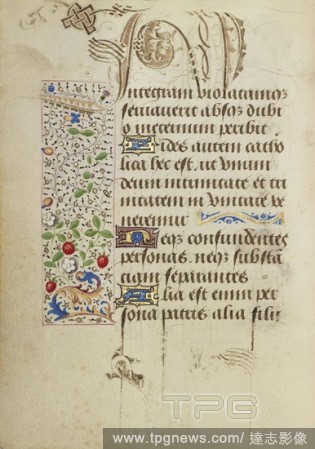 Integram inviolatamqz
servaverit absqz dubi
o in eternum peribit
Fides autem catho
lica hec est. ut unum
deum in trinitate et tri
nitatem in unitate ve
neremur
Neqz confundentes
personas. neqz substā
ciam separantes
Alia est enim per
sona patris alia filij
TPG
www.tpgnews.com/ 達志影像